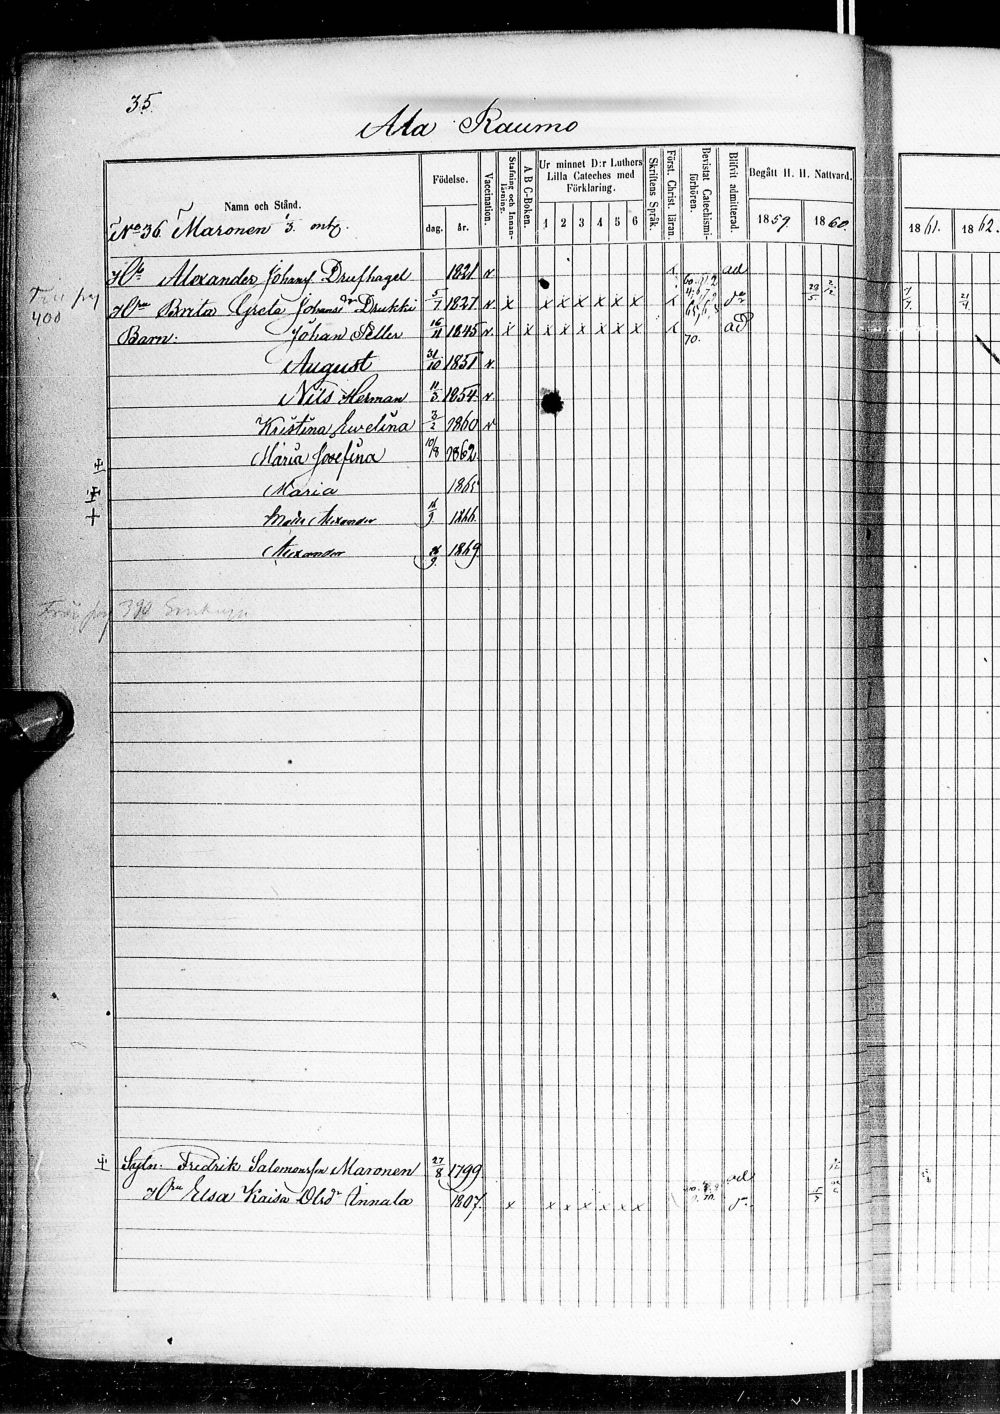 35.
Ala Raumo
Namn och Stånd.
Födelse.
dag. år.
Vaccination.
Stafning och Innanläsning.
A B C-Boken.
Ur minnet D:r Luthers Lilla Cateches med Förklaring.
1 2 3 4 5 6
Skriftens Språk.
Först. Christ. läran.
Bevistat Catechismiförhören.
Blifvit admitterad.
Begått H. H. Nattvard.
1859. 1860.
1861. 1862.
No 36 Maronen
Alexander Johansf Drufhagel 1821 v x ad
400
Hru Brita Greta Johansdr Drukki 5/7 1821 v x x x x x x x x
Barn: Johan Peller 16/11 1845 v x x x x x x x x x ad
70.
August 31/10 1851 v
Nils Herman 11/3 1854 v
Kristina Evelina 3/2 1860 v
Maria Josefina 10/8 1862
Maria 1865
Alexander 1866
Alexander 1869
Från pag 390
Sytn: Fredrik Salomonsson Maronen 27/8 1799 ad
Hru Elsa Kaisa Olsdr Annala 1807. x x x x x x x